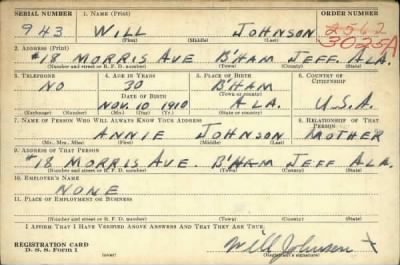 SERIAL NUMBER 1. NAME (Print) ORDER NUMBER
943 WILL JOHNSON 2562
(First) (Middle) (Last) 3025A
2. ADDRESS (Print)
#18 MORRIS AVE B'HAM JEFF. ALA.
(Number and street or R. F. D. number) (Town) (County) (State)
3. TELEPHONE 4. AGE IN YEARS 5. PLACE OF BIRTH 6. COUNTRY OF CITIZENSHIP
NO 30 B'HAM
DATE OF BIRTH (Town or county)
NOV. 10 1910 ALA. U.S.A.
(Mo.) (Day) (Yr.) (State or country)
7. NAME OF PERSON WHO WILL ALWAYS KNOW YOUR ADDRESS 8. RELATIONSHIP OF THAT PERSON
ANNIE JOHNSON MOTHER
(Mr., Mrs., Miss) (First) (Middle) (Last)
9. ADDRESS OF THAT PERSON
#18 MORRIS AVE. B'HAM JEFF ALA.
(Number and street or R. F. D. number) (Town) (County) (State)
10. EMPLOYER'S NAME
NONE
11. PLACE OF EMPLOYMENT OR BUSINESS
(Number and street or R. F. D. number) (Town) (County) (State)
I AFFIRM THAT I HAVE VERIFIED ABOVE ANSWERS AND THAT THEY ARE TRUE.
REGISTRATION CARD Will Johnson
D. S. S. Form 1 (Registrant's signature)